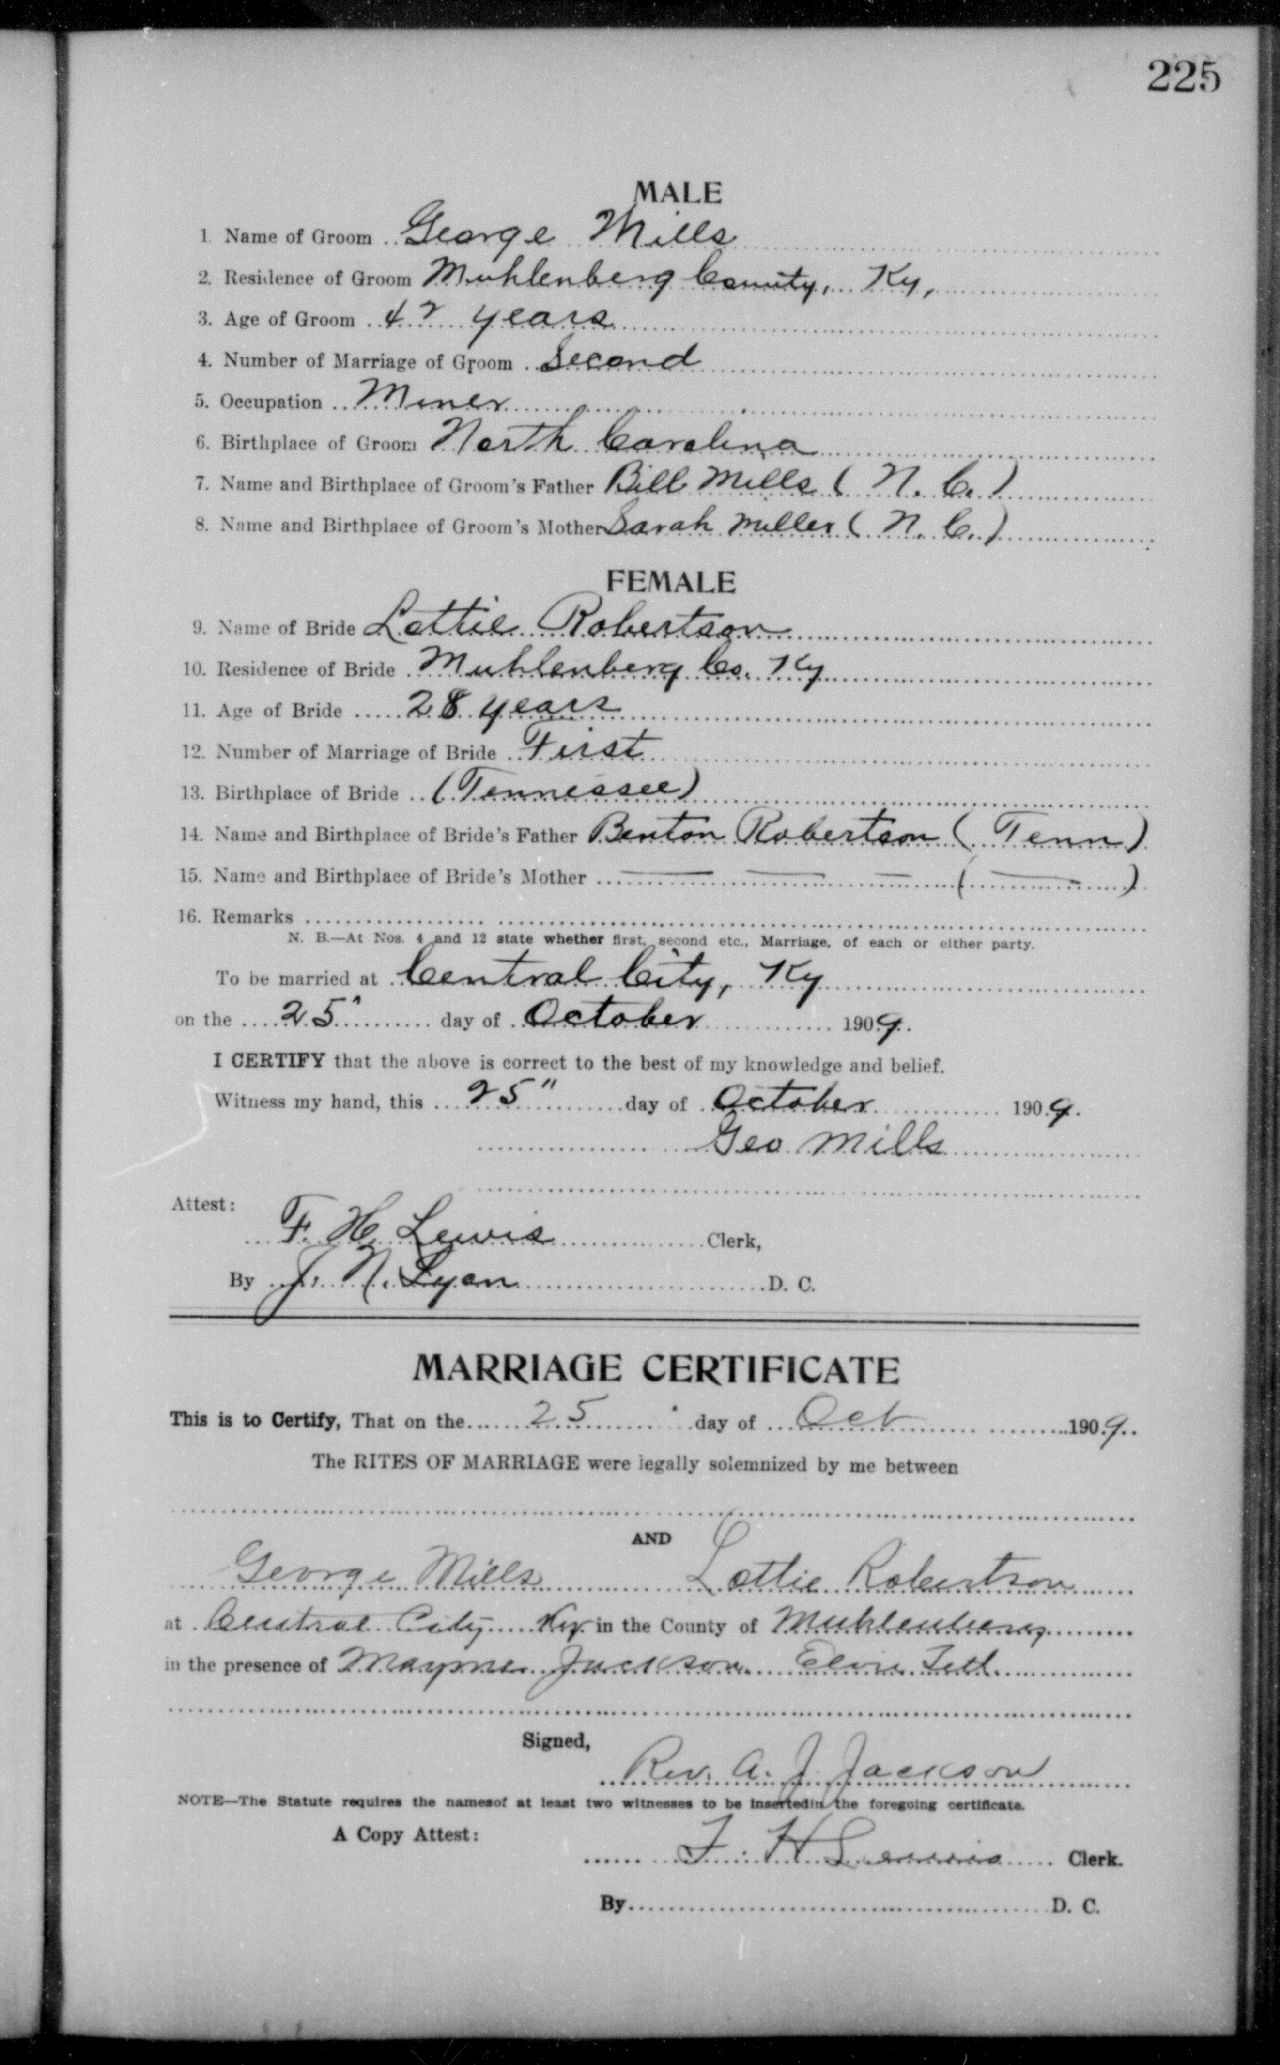 225
MALE
1. Name of Groom George Mills
2. Residence of Groom Muhlenberg County, Ky,
3. Age of Groom 42 years
4. Number of Marriage of Groom Second
5. Occupation Miner
6. Birthplace of Groom North Carolina
7. Name and Birthplace of Groom's Father Bill Mills ( N. C. )
8. Name and Birthplace of Groom's Mother Sarah Miller ( N. C. )
FEMALE
9. Name of Bride Lottie Robertson
10. Residence of Bride Muhlenberg Co. Ky
11. Age of Bride 28 years
12. Number of Marriage of Bride First
13. Birthplace of Bride (Tennessee)
14. Name and Birthplace of Bride's Father Benton Robertson ( Tenn )
15. Name and Birthplace of Bride's Mother — — — ( — )
16. Remarks
N. B.—At Nos. 4 and 12 state whether first, second etc., Marriage, of each or either party.
To be married at Central City, Ky
on the 25" day of October 1909.
I CERTIFY that the above is correct to the best of my knowledge and belief.
Witness my hand, this 25" day of October 1909.
Geo Mills
Attest:
F. H. Lewis Clerk,
By J. N. Lyon D. C.
MARRIAGE CERTIFICATE
This is to Certify, That on the 25 day of Oct 1909.
The RITES OF MARRIAGE were legally solemnized by me between
AND
George Mills Lottie Robertson
at Central City Ky in the County of Muhlenberg
in the presence of Mayme Jackson
Signed,
Rev. A. J. Jackson
NOTE—The Statute requires the namesof at least two witnesses to be insertedin the foregoing certificate.
A Copy Attest:
F. H Lewis Clerk.
By D. C.